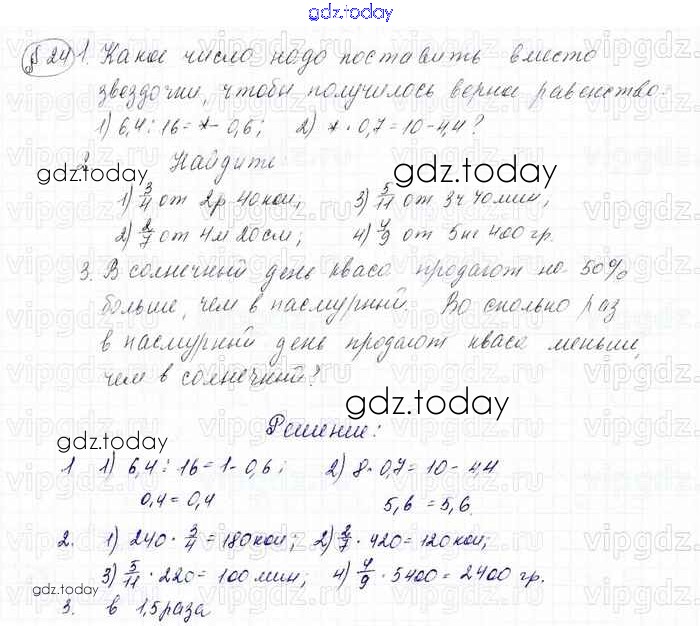 gdz.today
§ 24 1. Какое число надо поставить вместо
звездочки, чтобы получилось верное равенство:
1) 6,4 : 16 = * - 0,6; 2) * · 0,7 = 10 - 4,4?
2. Найдите:
gdz.today gdz.today
1) 3/4 от 2р 40 коп; 3) 5/11 от 3ч 40 мин,
2) 2/7 от 4м 20 см; 4) 4/9 от 5кг 400 гр.
3. В солнечный день кваса продают на 50%
больше, чем в пасмурный. Во сколько раз
в пасмурный день продают кваса меньше,
чем в солнечный?
gdz.today
Решение:
gdz.today
1 1) 6,4 : 16 = 1 - 0,6; 2) 8 · 0,7 = 10 - 4,4
0,4 = 0,4 5,6 = 5,6
2. 1) 240 · 3/4 = 180 коп; 2) 2/7 · 420 = 120 коп;
3) 5/11 · 220 = 100 мин; 4) 4/9 · 5400 = 2400 гр.
gdz.today
3. в 1,5 раза